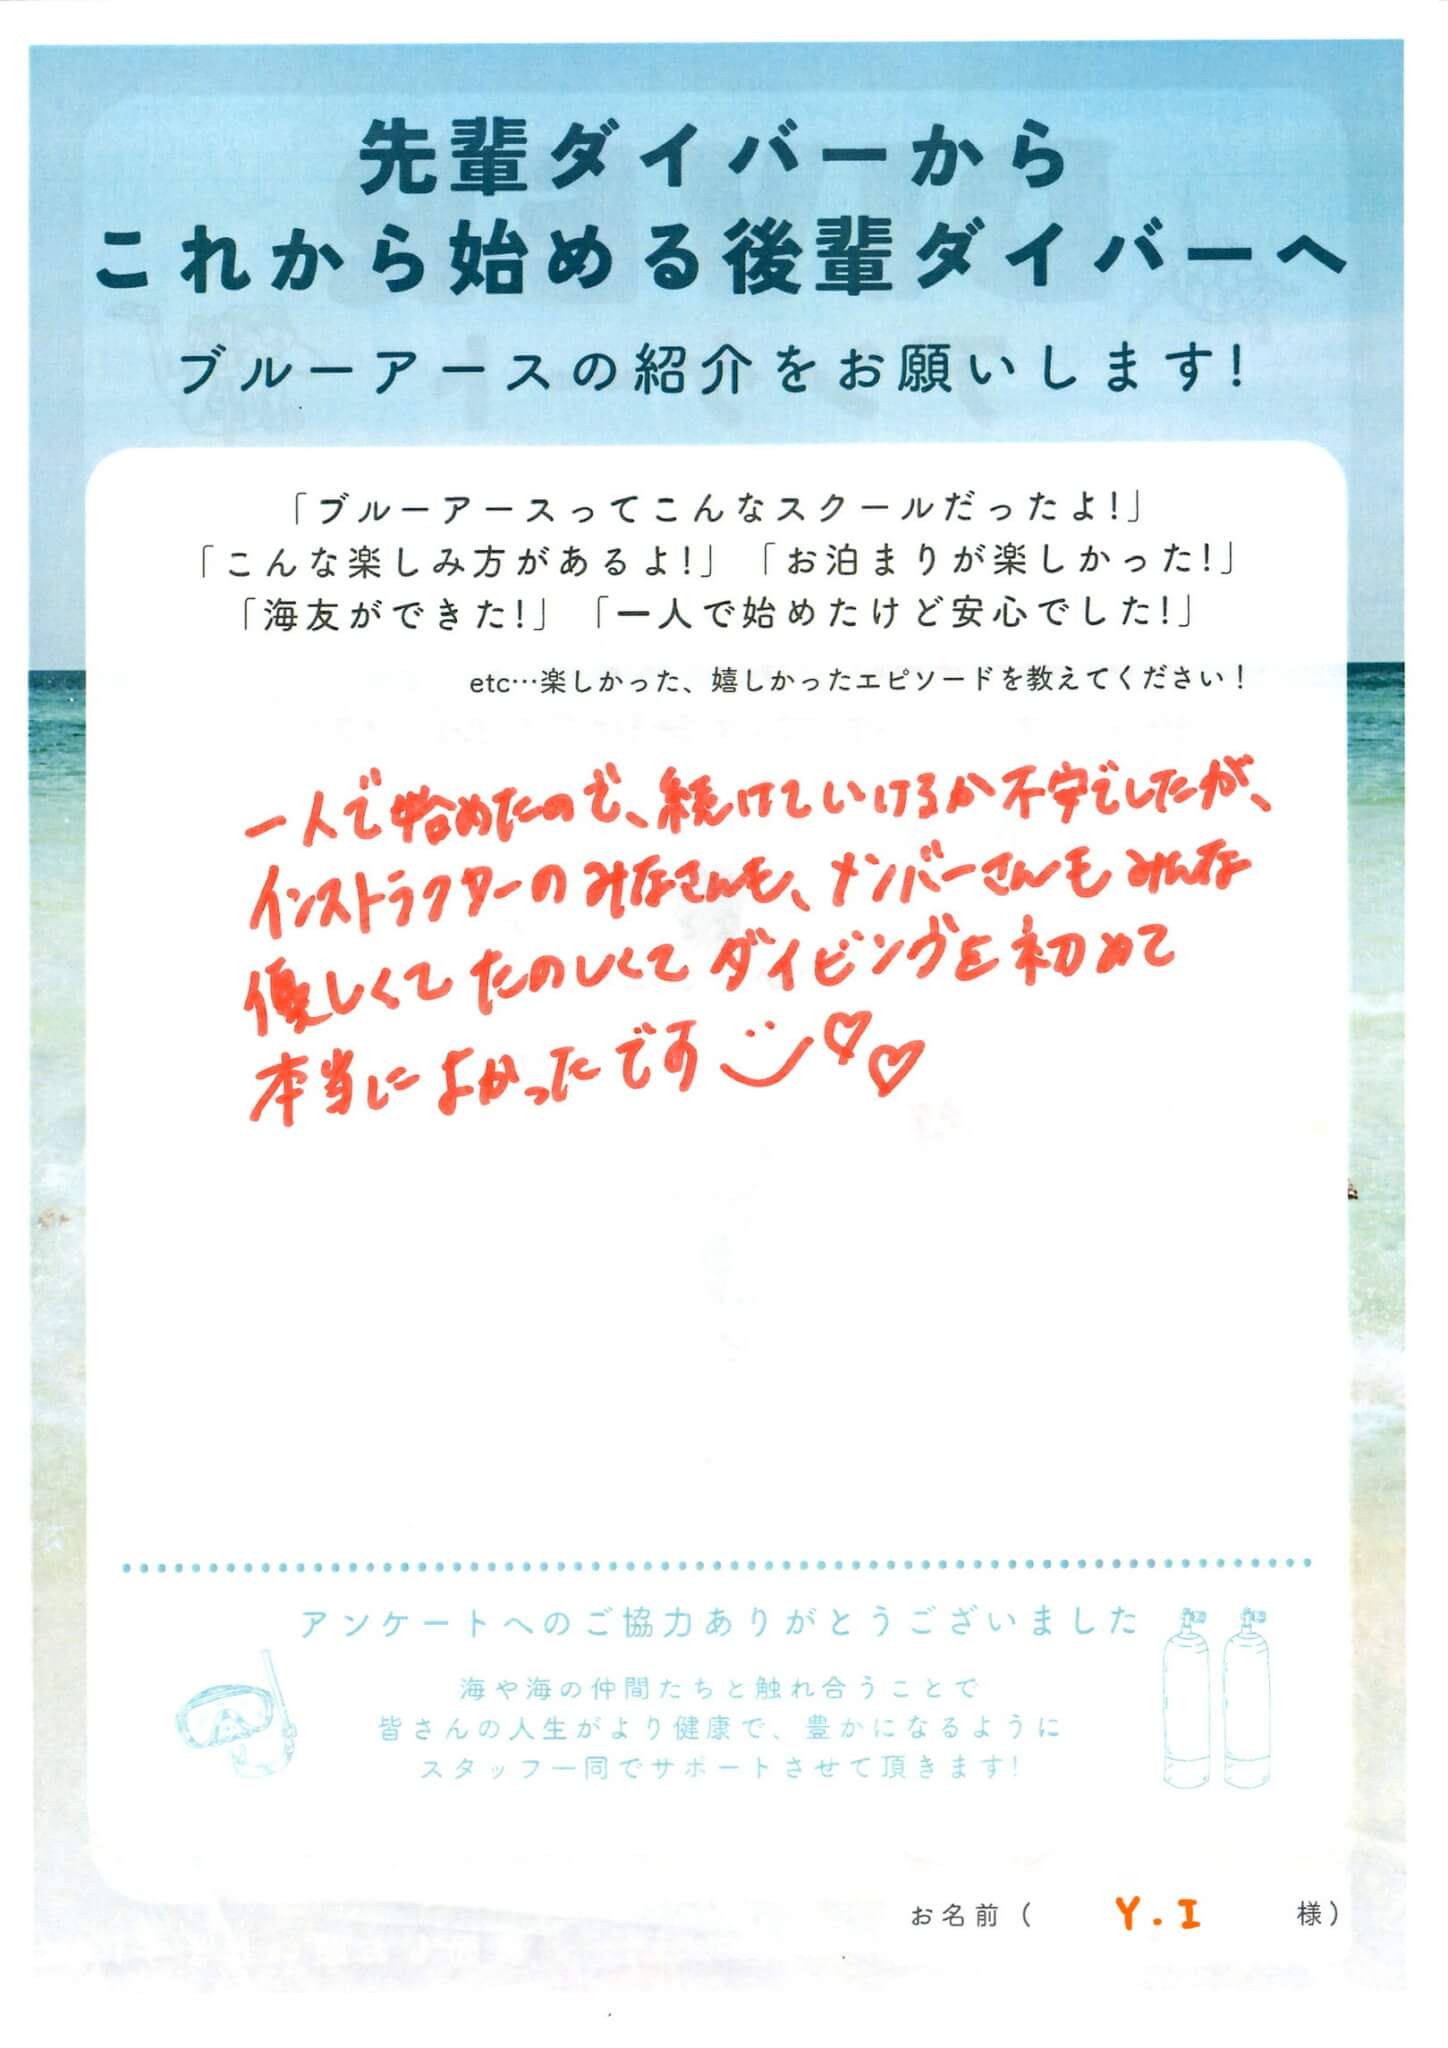 先輩ダイバーから
これから始める後輩ダイバーへ
ブルーアースの紹介をお願いします!
「ブルーアースってこんなスクールだったよ!」
「こんな楽しみ方があるよ!」「お泊まりが楽しかった!」
「海友ができた!」「一人で始めたけど安心でした!」
etc…楽しかった、嬉しかったエピソードを教えてください！
一人で始めたので、続けていけるか不安でしたが、
インストラクターのみなさんも、メンバーさんもみんな
優しくてたのしくてダイビングを初めて
本当によかったです
アンケートへのご協力ありがとうございました
海や海の仲間たちと触れ合うことで
皆さんの人生がより健康で、豊かになるように
スタッフ一同でサポートさせて頂きます!
お名前（ Y.I 様）